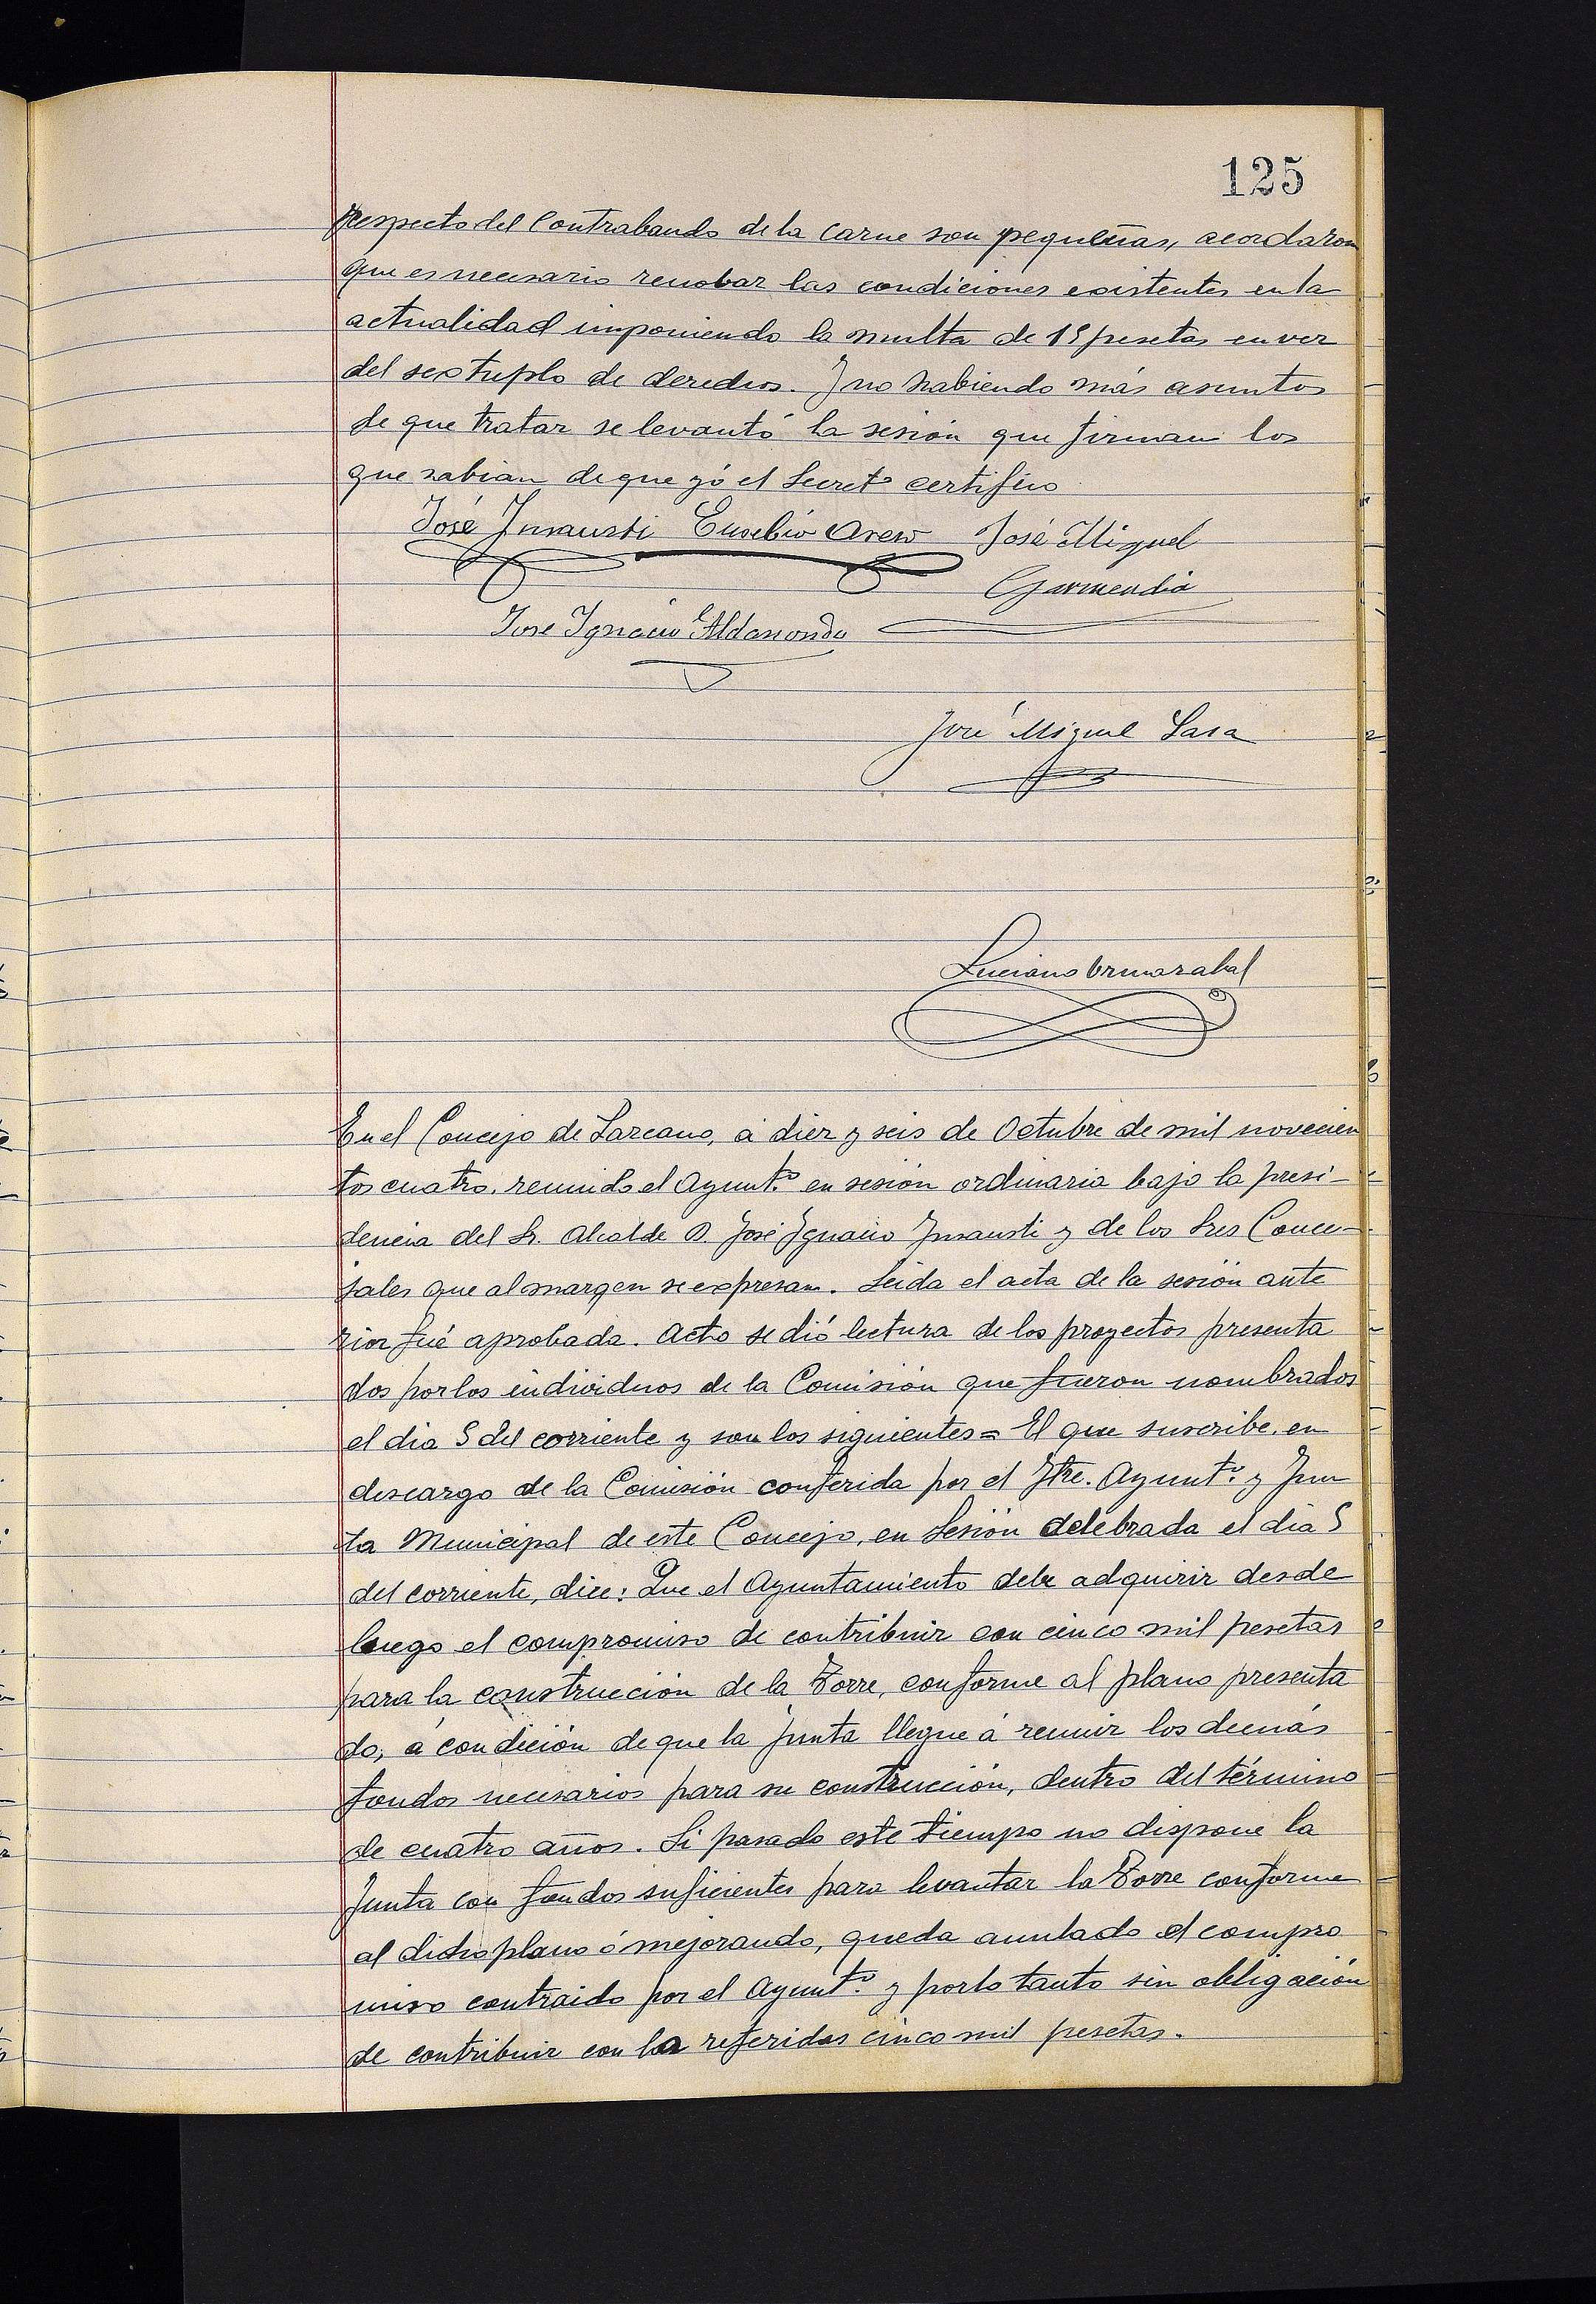 125
respecto del Contrabando de la carne son pequeñas, acordaron
que es necesario renobar las condiciones existentes en la
actualidad imponiendo la multa de 15 pesetas en vez
del sextuplo de derechos. Y no habiendo más asuntos
de que tratar se levantó la sesión que firman los
que sabian de que yó el Secret.º certifico
José Insausti Eusebio Areso José Miguel
Garmendia
Jose Ignacio Aldasondo
José Miguel Sasa
Luciano Urmazabal
En el Concejo de Lazcano, á diez y seis de Octubre de mil novecien
tos cuatro, reunido el Ayunt.º en sesión ordinaria bajo la presi-
dencia del Sr. Alcalde D. José Ignacio Insausti y de los Sres Conce-
jales que al margen se expresan. Leida el acta de la sesión ante
rior fué aprobada. Acto se dió lectura de los proyectos presenta
dos por los individuos de la Comisión que fueron nombrados
el dia 5 del corriente y son los siguientes = El que suscribe, en
descargo de la Comisión conferida por el Iltre. Ayunt.º y Jun
ta Municipal de este Concejo, en Sesión celebrada el dia 5
del corriente, dice: Que el Ayuntamiento debe adquirir desde
luego el compromiso de contribuir con cinco mil pesetas
para la construcción de la Torre, conforme al plano presenta
do, á condición de que la Junta llegue á reunir los demás
fondos necesarios para su construcción, dentro del término
de cuatro años. Si pasado este tiempo no dispone la
Junta con fondos suficientes para levantar la Torre conforme
al dicho plano ó mejorando, queda anulado el compro
miso contraido por el Ayunt.º y por lo tanto sin obligación
de contribuir con las referidas cinco mil pesetas.